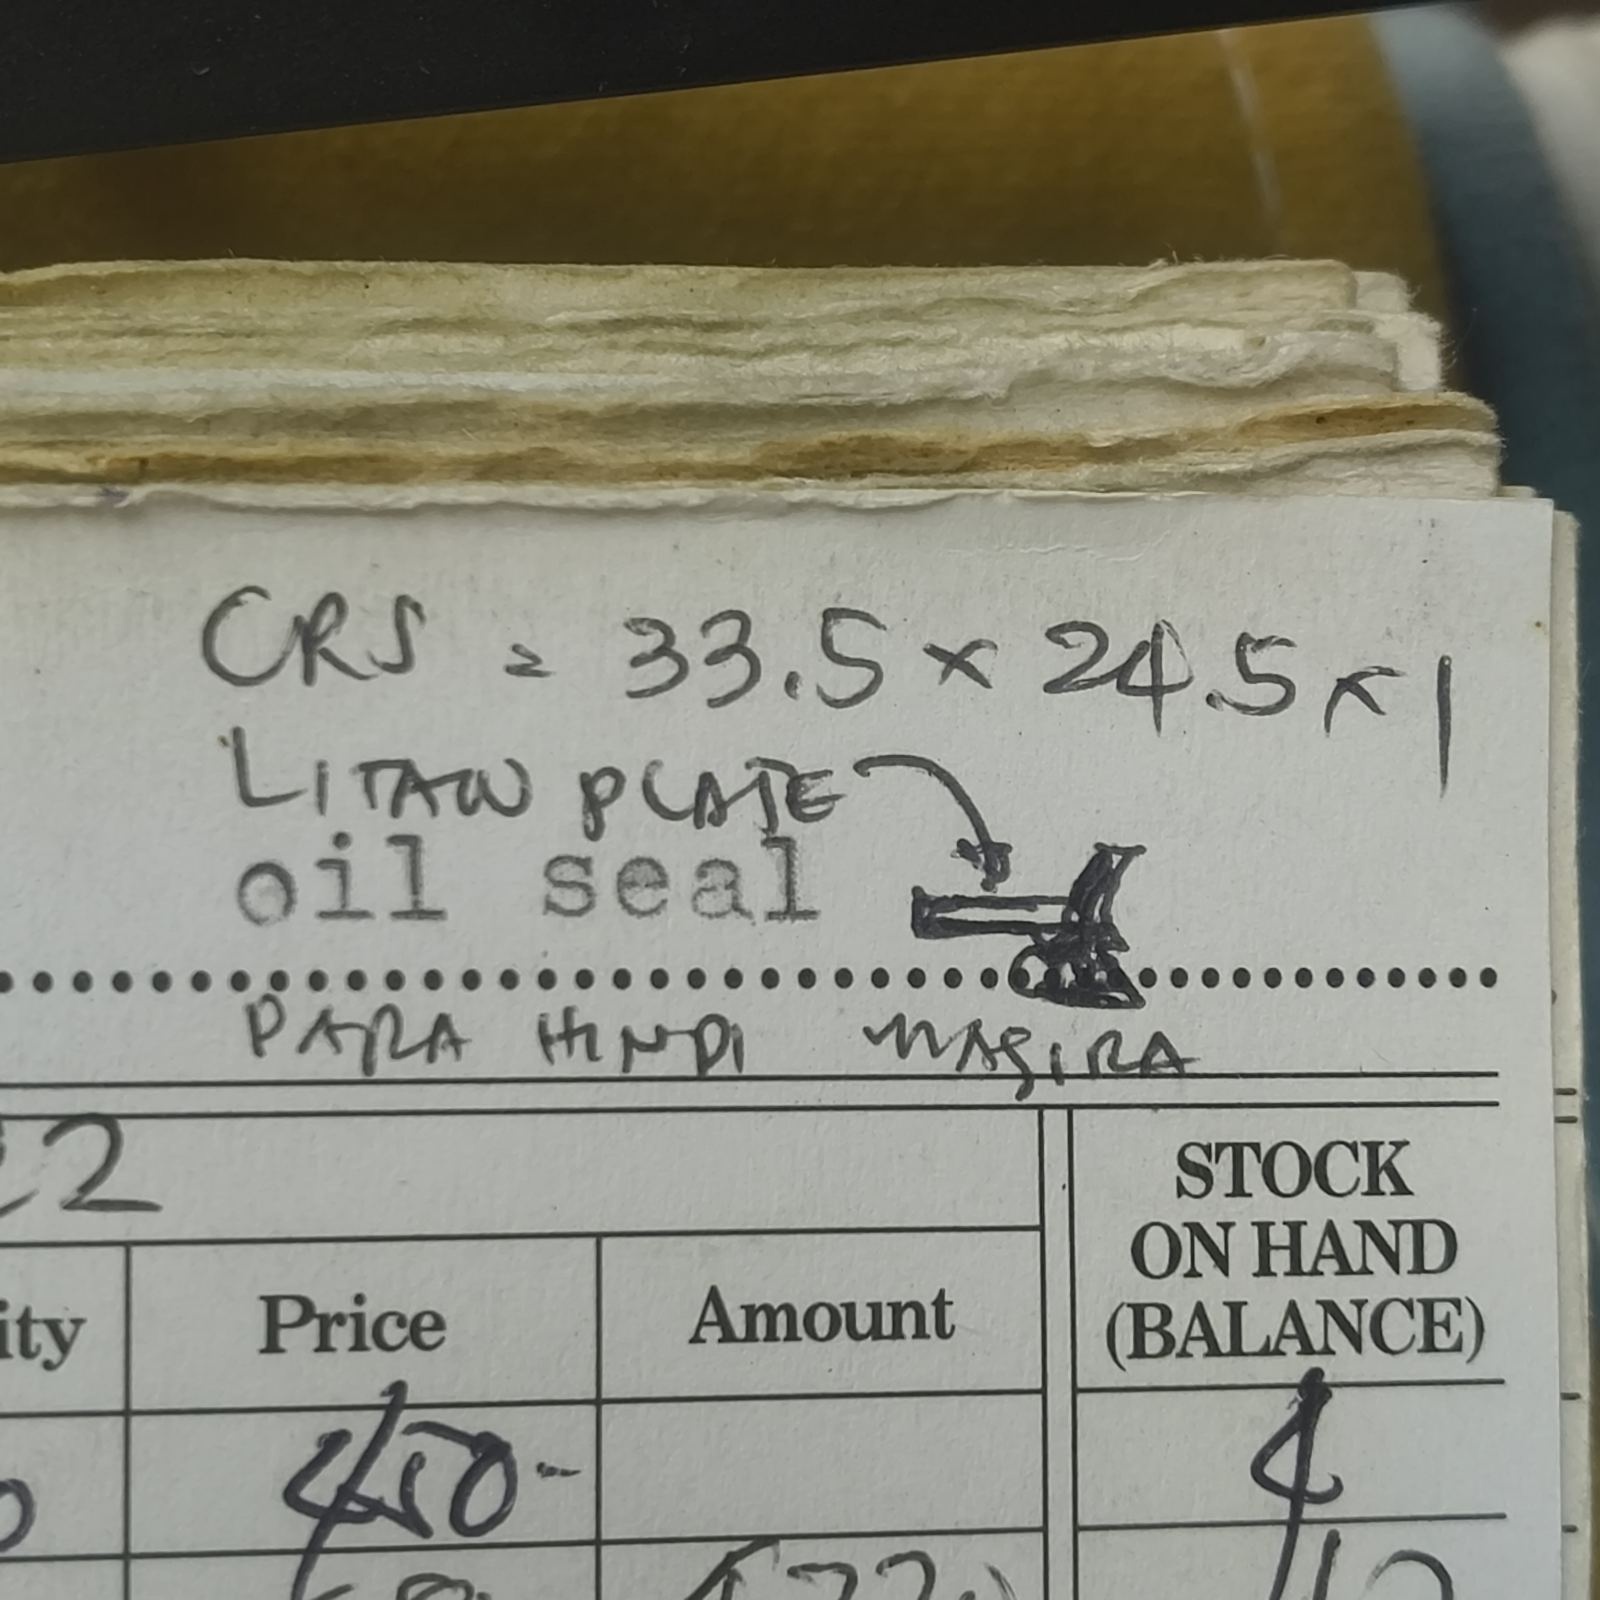 CRS = 33.5 x 24.5 x 1
LITAW PLATE
oil seal
PARA HINDI MASIRA
22
ity Price Amount STOCK
ON HAND
(BALANCE)
450- 4